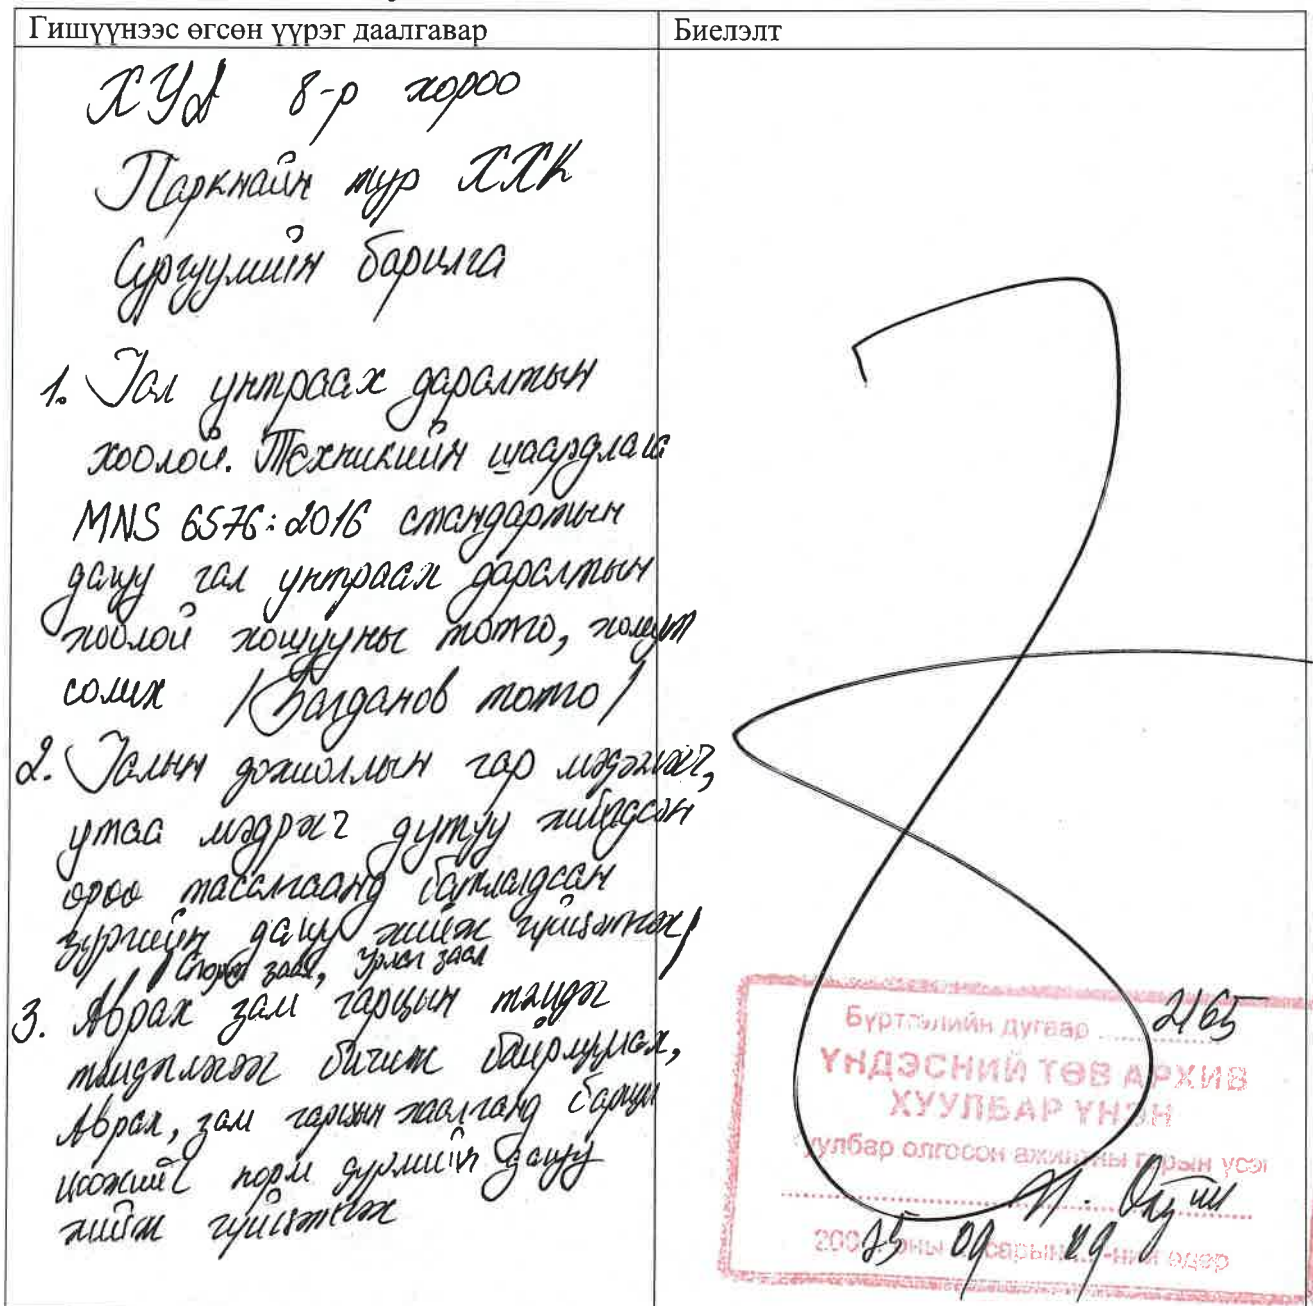 Гишүүнээс өгсөн үүрэг даалгавар
Биелэлт
ХУД 8-р хороо
Паркнайн тур ХХК
Сургуулийн барилга
1. Гал унтраах даралтын
хоолой. Техникийн шаардлага
MNS 6576:2016 стандартын
дагуу гал унтраах даралтын
хоолой хошууны толгой, холбогч
солих /Багданов толгой/
2. Галын дохиоллын гар мэдээлэгч,
утаа мэдрэгч дутуу хийгдсэн
өрөө тасалгаанд батлагдсан
зургийн дагуу хийж гүйцэтгэх
/Спорт заал, Урлаг заал/
3. Аврах зам гарцын тэмдэг
тэмдэглэгээг бичиж байрлуулах,
Аврах, зам гарцын хаалганд
норм дүрмийн дагуу
хийж гүйцэтгэх
Бүртгэлийн дугаар 2165
ҮНДЭСНИЙ ТӨВ АРХИВ
ХУУЛБАР ҮНЭН
уулбар олгосон ажилтны гарын үсэг
200 25 оны 09 сарын 29-ний өдөр